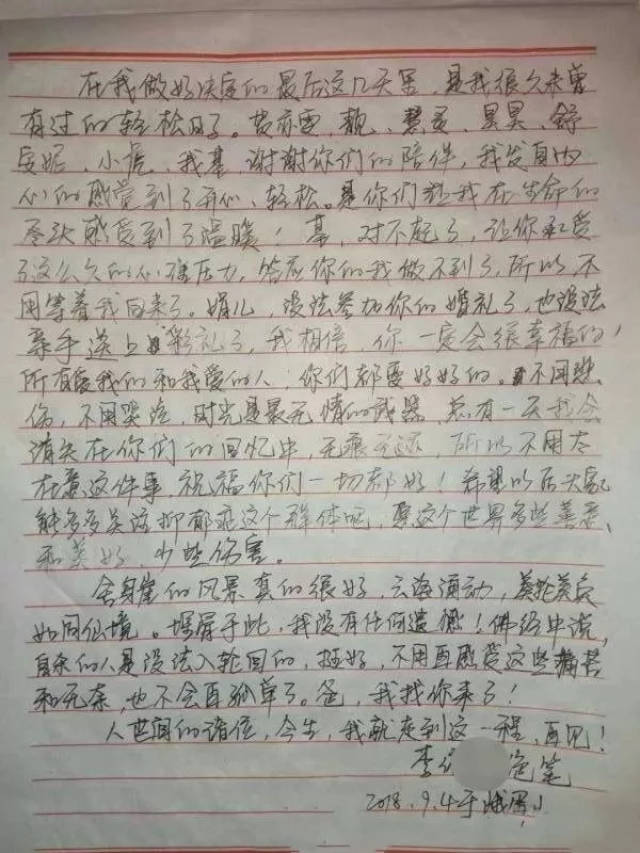 在我做好决定的最后这几天里，是我很久未曾
有过的轻松日子。黄亦雪、靓、慧灵、昊昊、舒
安妮、小虎、我基，谢谢你们的陪伴，我发自内
心的感觉到了开心、轻松。是你们让我在生命的
尽头感受到了温暖！基，对不起了，让你承受
了这么久的心理压力，答应你的我做不到了，所以，不
用等着我回来了。娟儿，没法参加你的婚礼了，也没法
亲手送上彩礼了，我相信，你一定会很幸福的！
所有爱我的和我爱的人，你们都要好好的。不用悲
伤，不用哭泣，时光是最无情的武器，总有一天我会
消失在你们的回忆中，无痕无迹，所以不用太
在意这件事，祝福你们一切都好！希望以后大家
能多多关注抑郁症这个群体吧，愿这个世界多些善意、
和美好，少些伤害。
舍身崖的风景真的很好，云海涌动，美轮美奂
如同仙境。埋屏于此，我没有任何遗憾！佛经中说，
自杀的人是没法入轮回的，挺好，不用再感受这些痛苦
和无奈，也不会再孤单了。爸，我找你来了！
人世间的诸位，今生，我就走到这一程，再见！
李 笔
2018.9.4于峨眉山